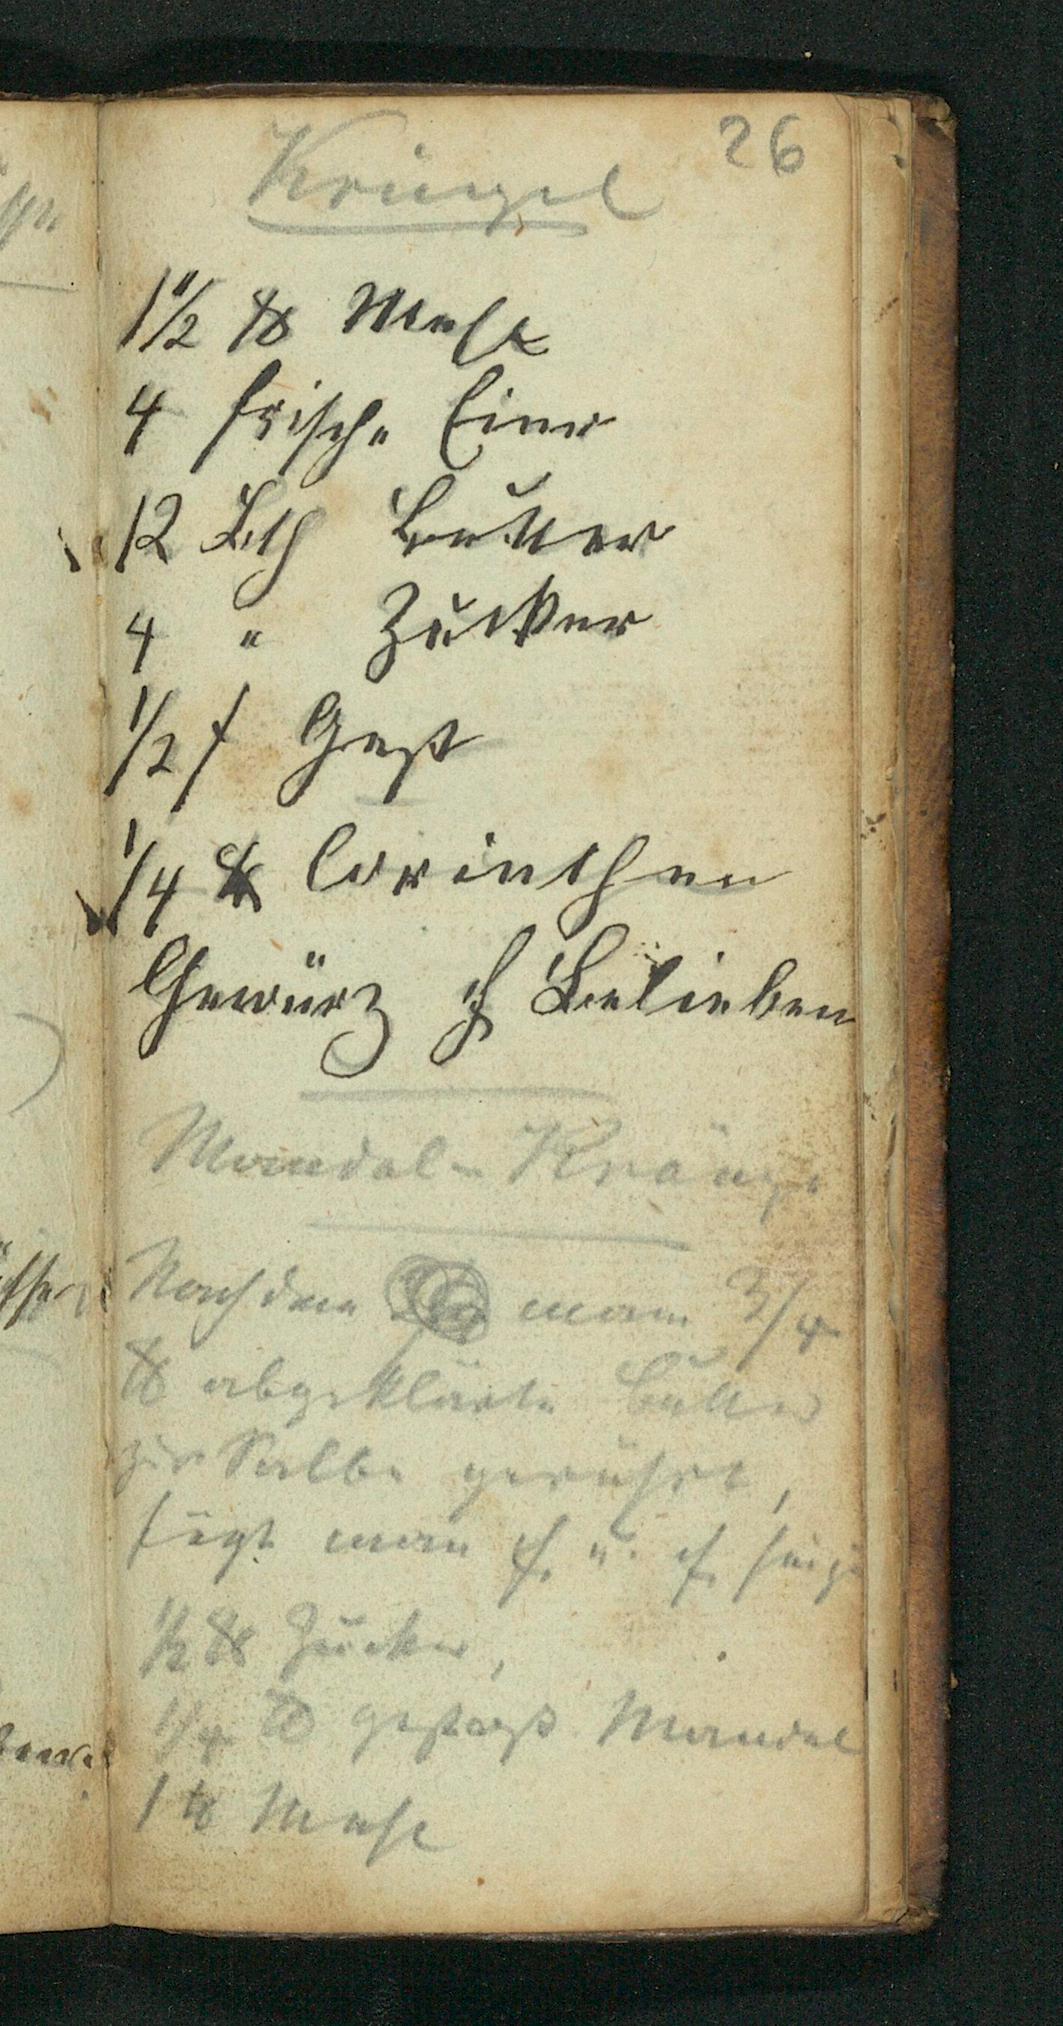 26
Kringel
1 1/2 ℔ Mehl
4 frische Eier
12 Lth Butter
4 " Zucker
1/2 f Gest
1/4 ℔ Corinthen
Gewürz n. Belieben
Mandel-Kränze
Nachdem man 3/4
℔ abgeklärte Butter
zur Salbe gerührt,
fügt man n. u. n. hinzu
1/2 ℔ Zucker,
1/4 ℔ gestoß Mandel
1 ℔ Mehl